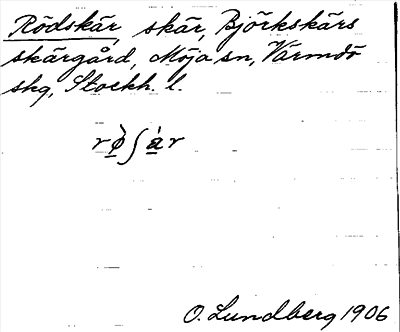 Rödskär, skär, Björkskärs
skärgård, Möja sn, Värmdö
skg, Stockh. l.
O. Lundberg 1906